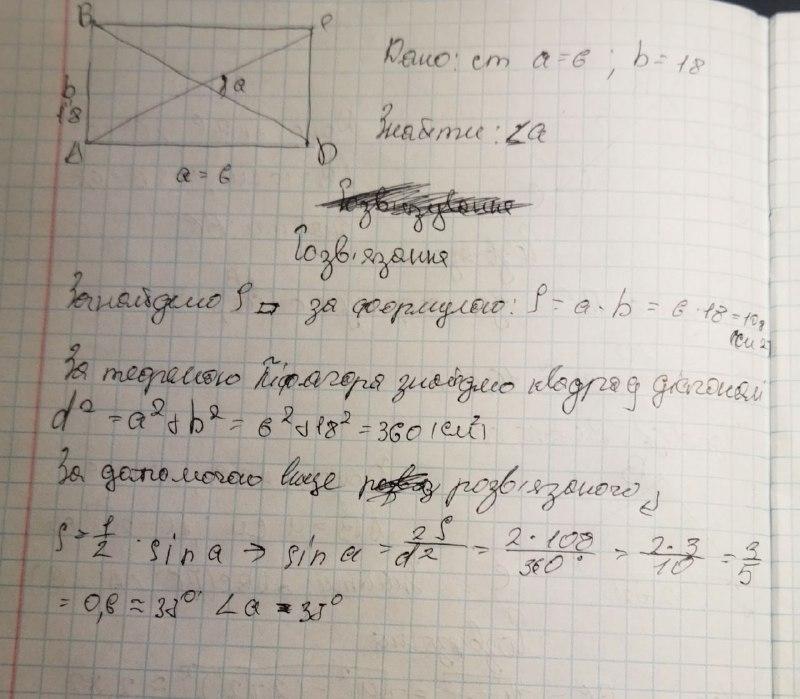 B C
Дано: ст a=6 ; b=18
γ a
b
18
A D
Знайти: ∠a
a = 6
Розв'язання
Занайдемо S за формулою: S = a · b = 6 · 18 = 108
(см2)
За теоремою Піфагора знайдмо квадрад діагоналі
d² = a² + b² = 6² + 18² = 360 (см²)
За допомогою вище розв'язаного
S = 1/2 · sin a → sin a = 2S/d2 = 2·108/360° = 2·3/10 = 3/5
= 0,6 ≈ 35° ∠a = 35°